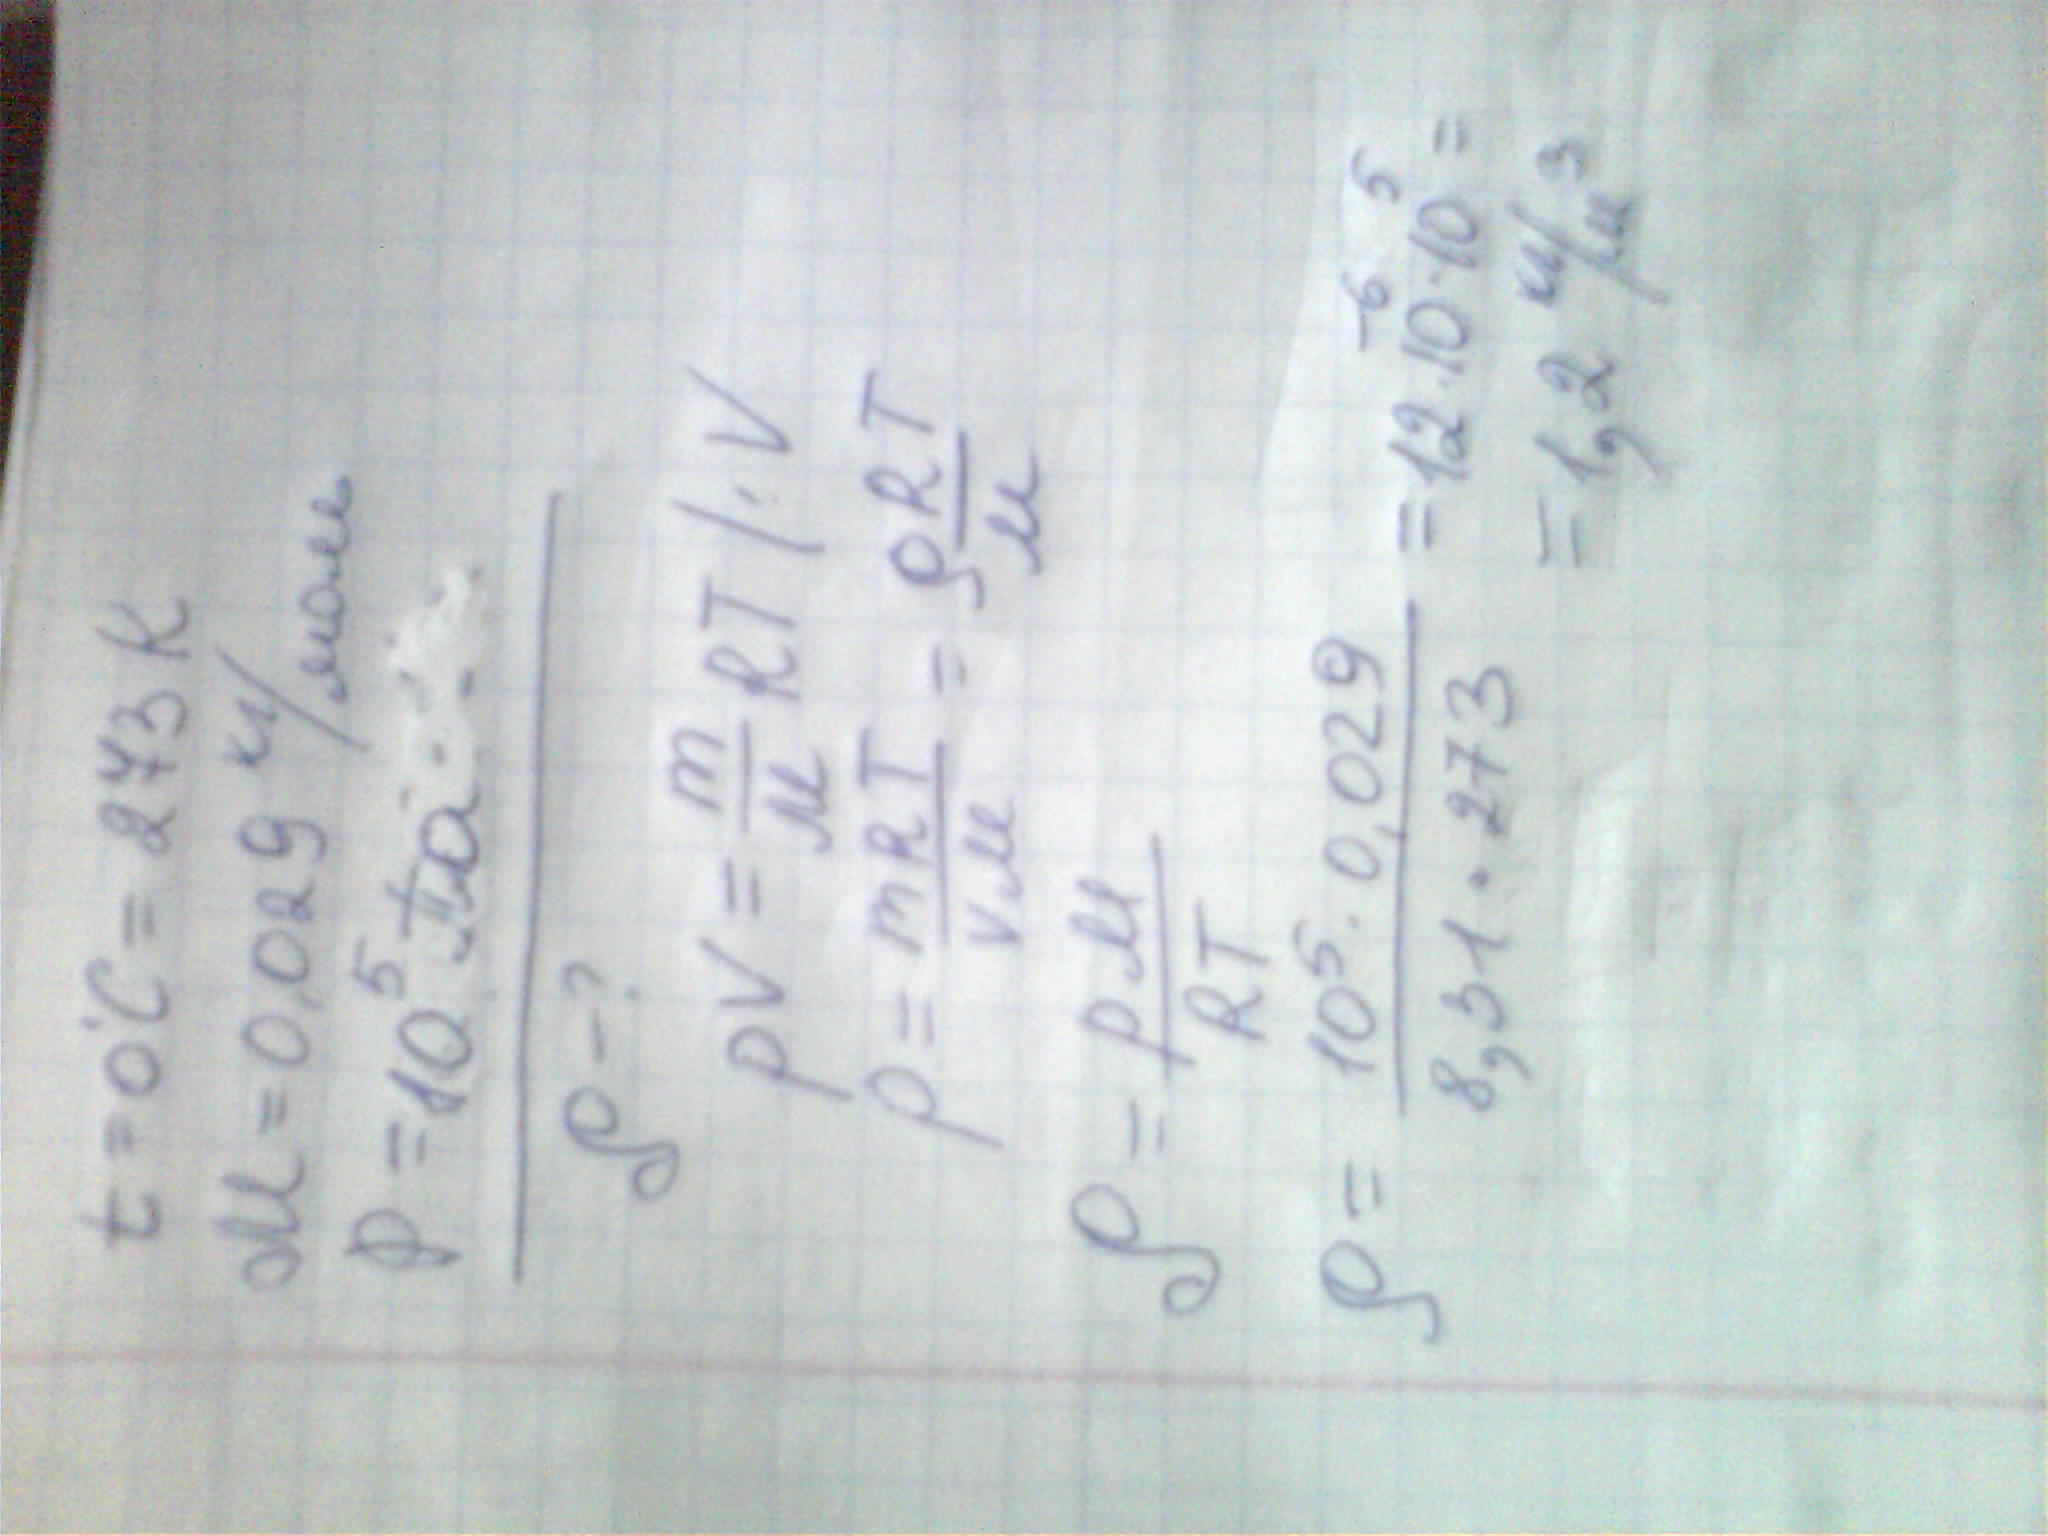 t = 0°C = 273 K
M = 0,029 кг/моль
p = 10⁵ Па
ρ - ?
pV = m/μ RT /:V
p = mRT/Vμ = ρ RT/μ
ρ = pμ/RT
ρ = 10⁵ · 0,029 / 8,31 · 273 = 12 · 10⁻⁶ · 10⁵ =
= 1,2 кг/м³